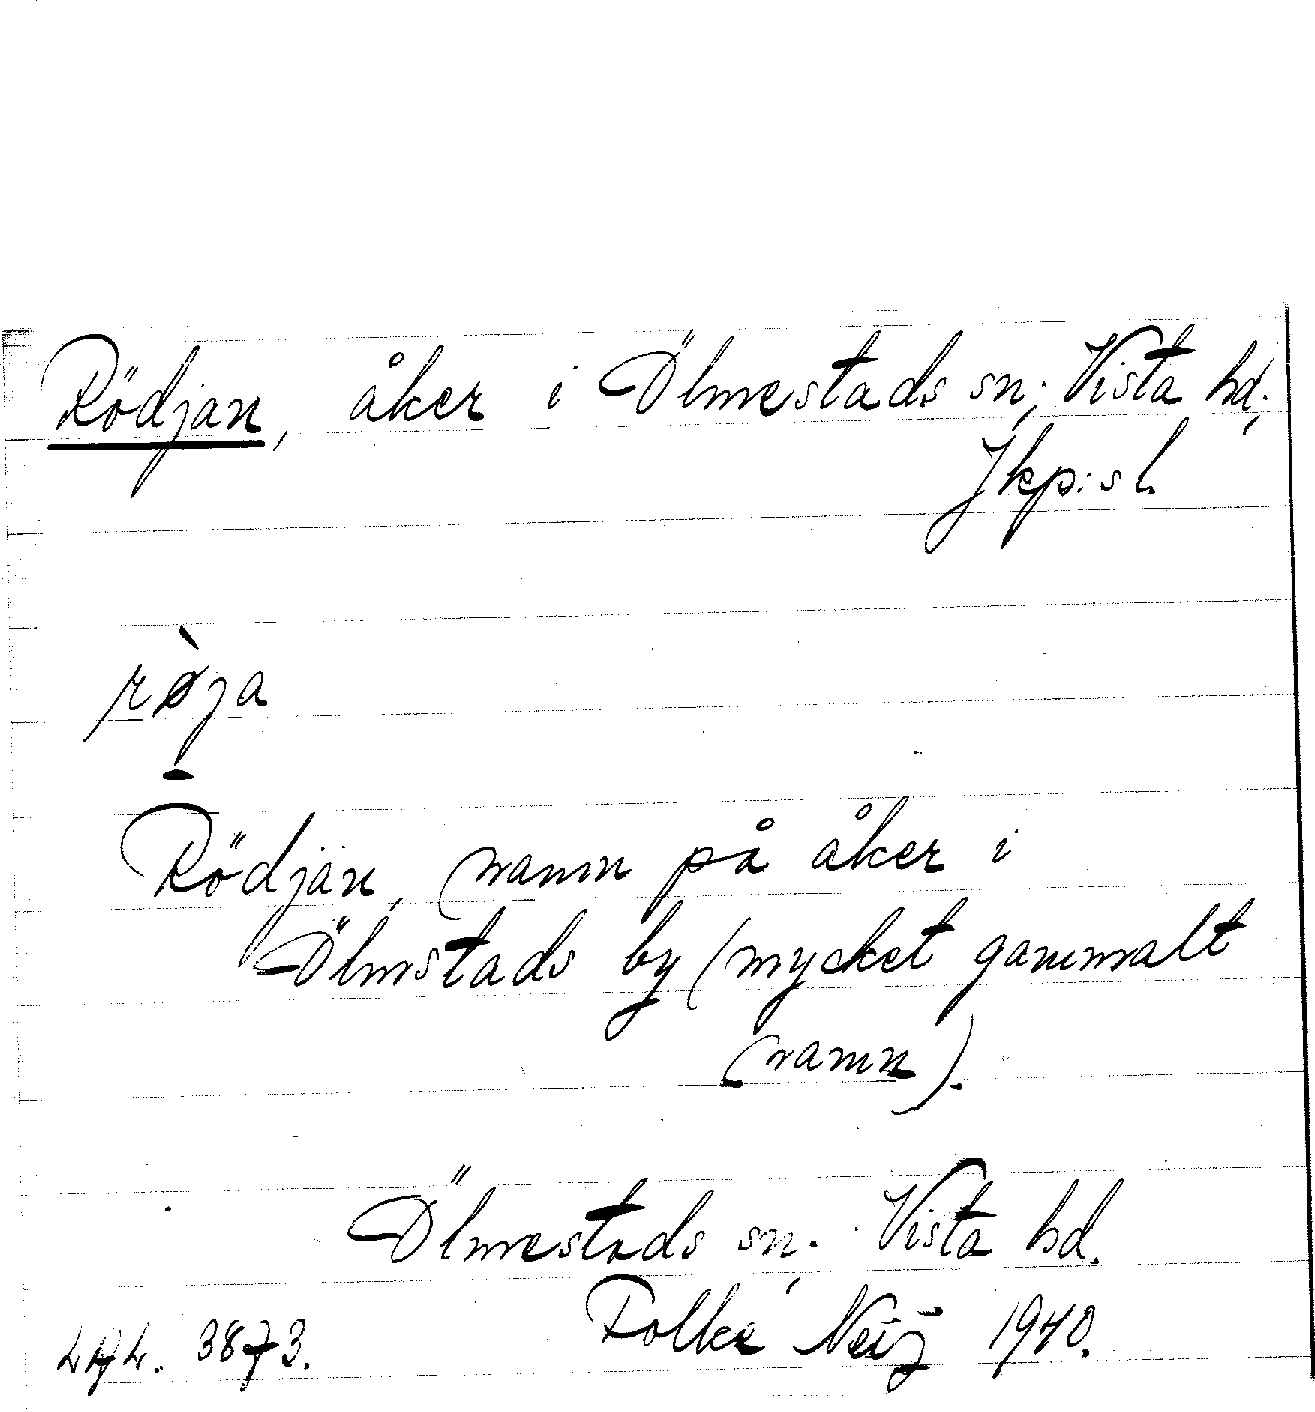 Rödjan, åker i Ölmestads sn., Vista hd.,
Jkp:s l.
rø̀ja
Rödjan, namn på åker i
Ölmstads by (mycket gammalt
namn).
Ölmestads sn., Vista hd.
Folke Neij 1940.
3873.